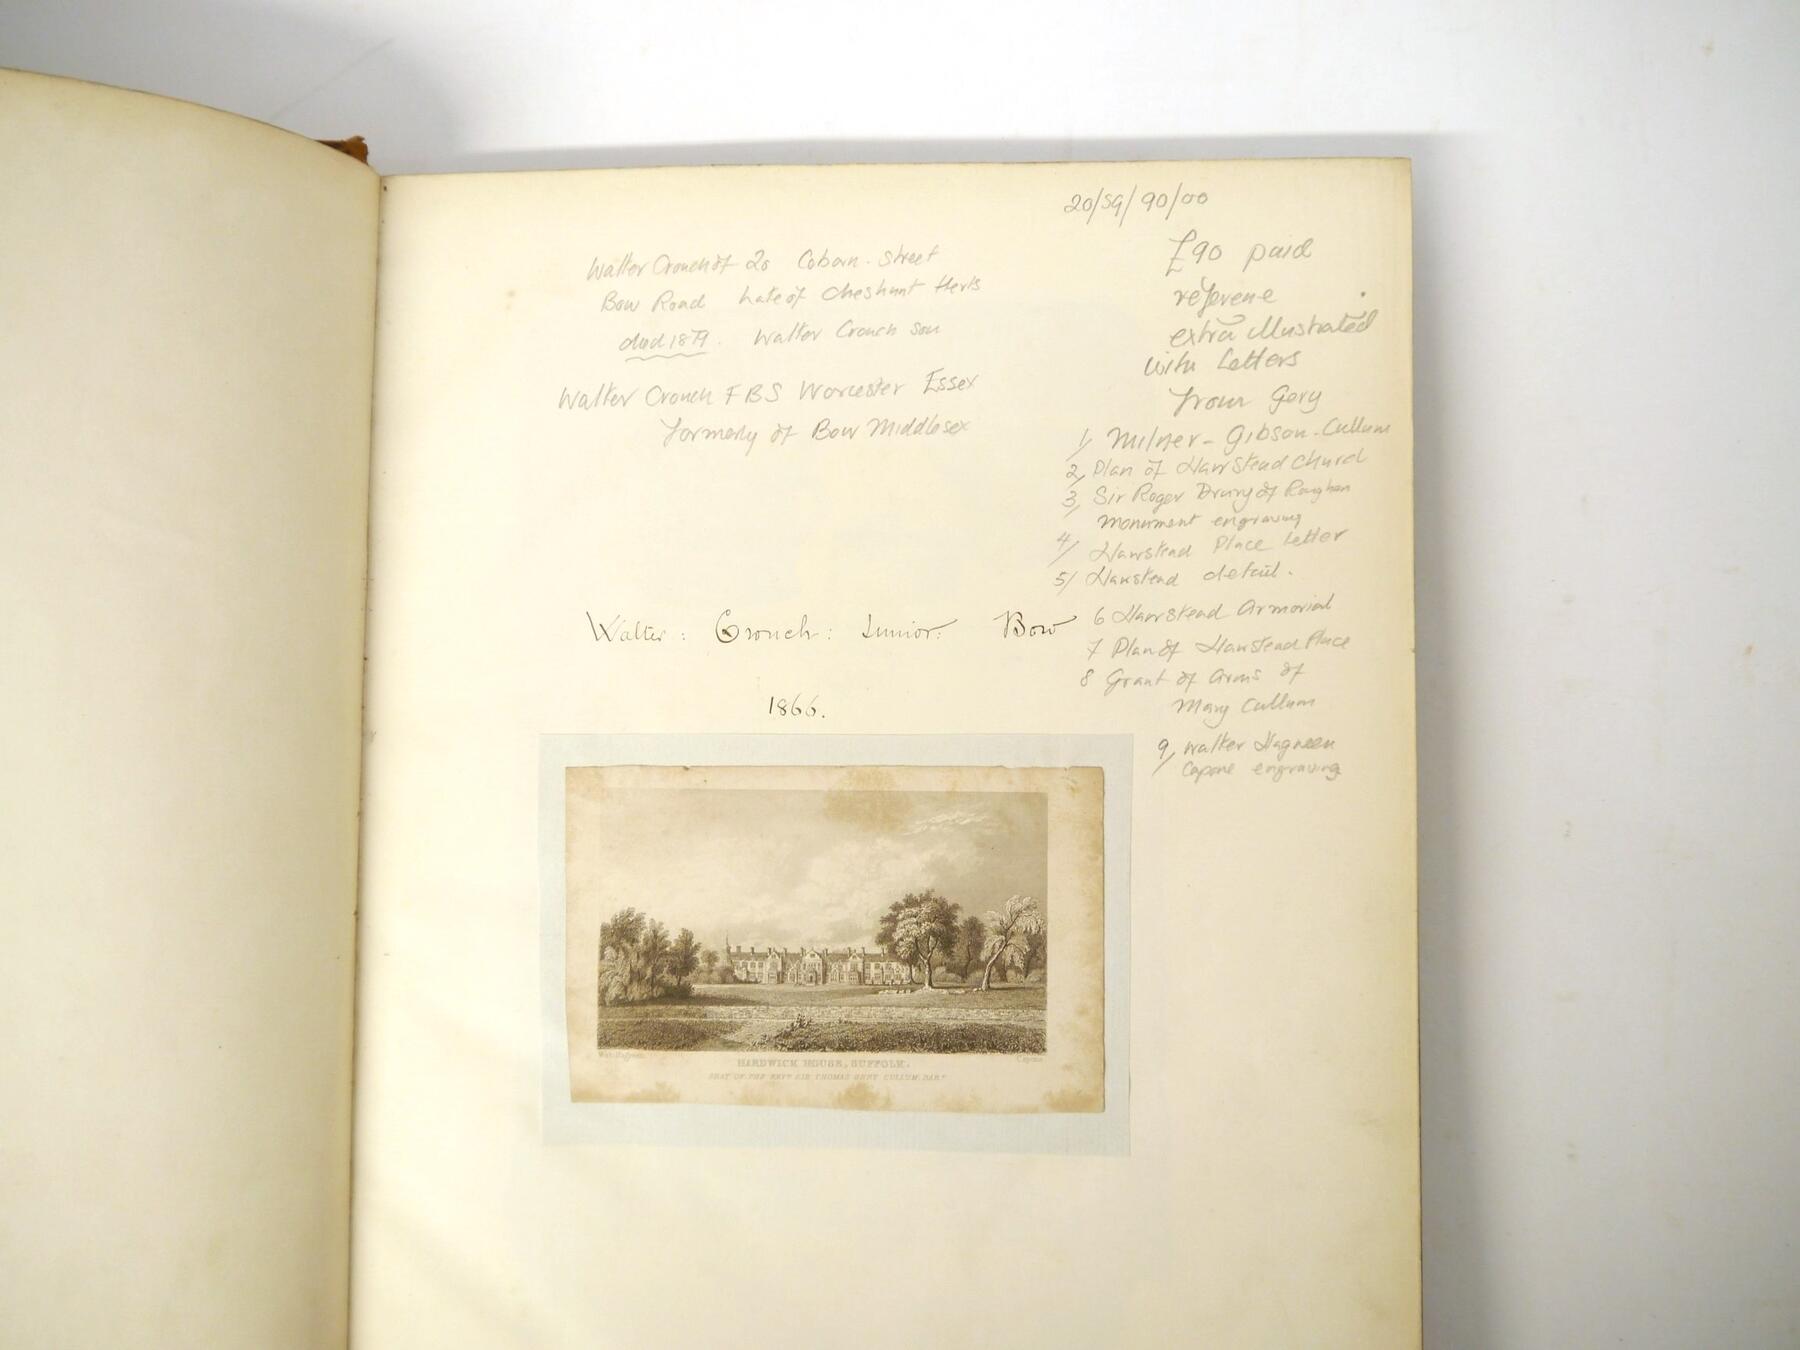 20/59/90/00
Walter Crouch of 20 Coborn - Street
Bow Road Late of Cheshunt Herts
died 1879. Walter Crouch son
Walter Crouch FBS Worcester Essex
formerly of Bow Middlesex
£90 paid
extra illustrated
with Letters
from Gery
1/ Milner - Gibson - Cullum
2/ Plan of Hawstead Church
3/ Sir Roger Drury of Rougham
monument engraving
4/ Hawstead Place Letter
5/ Hawstead detail.
6 Hawstead Armorial
7 Plan of Hawstead Place
8 Grant of Arms of
Mary Cullum
9/ Walter Hagreen
Capone engraving
Walter : Crouch : Junior : Bow
1866.
Capone
HARDWICK HOUSE, SUFFOLK.
SEAT OF THE REVD. SIR THOMAS GERY CULLUM, BART.